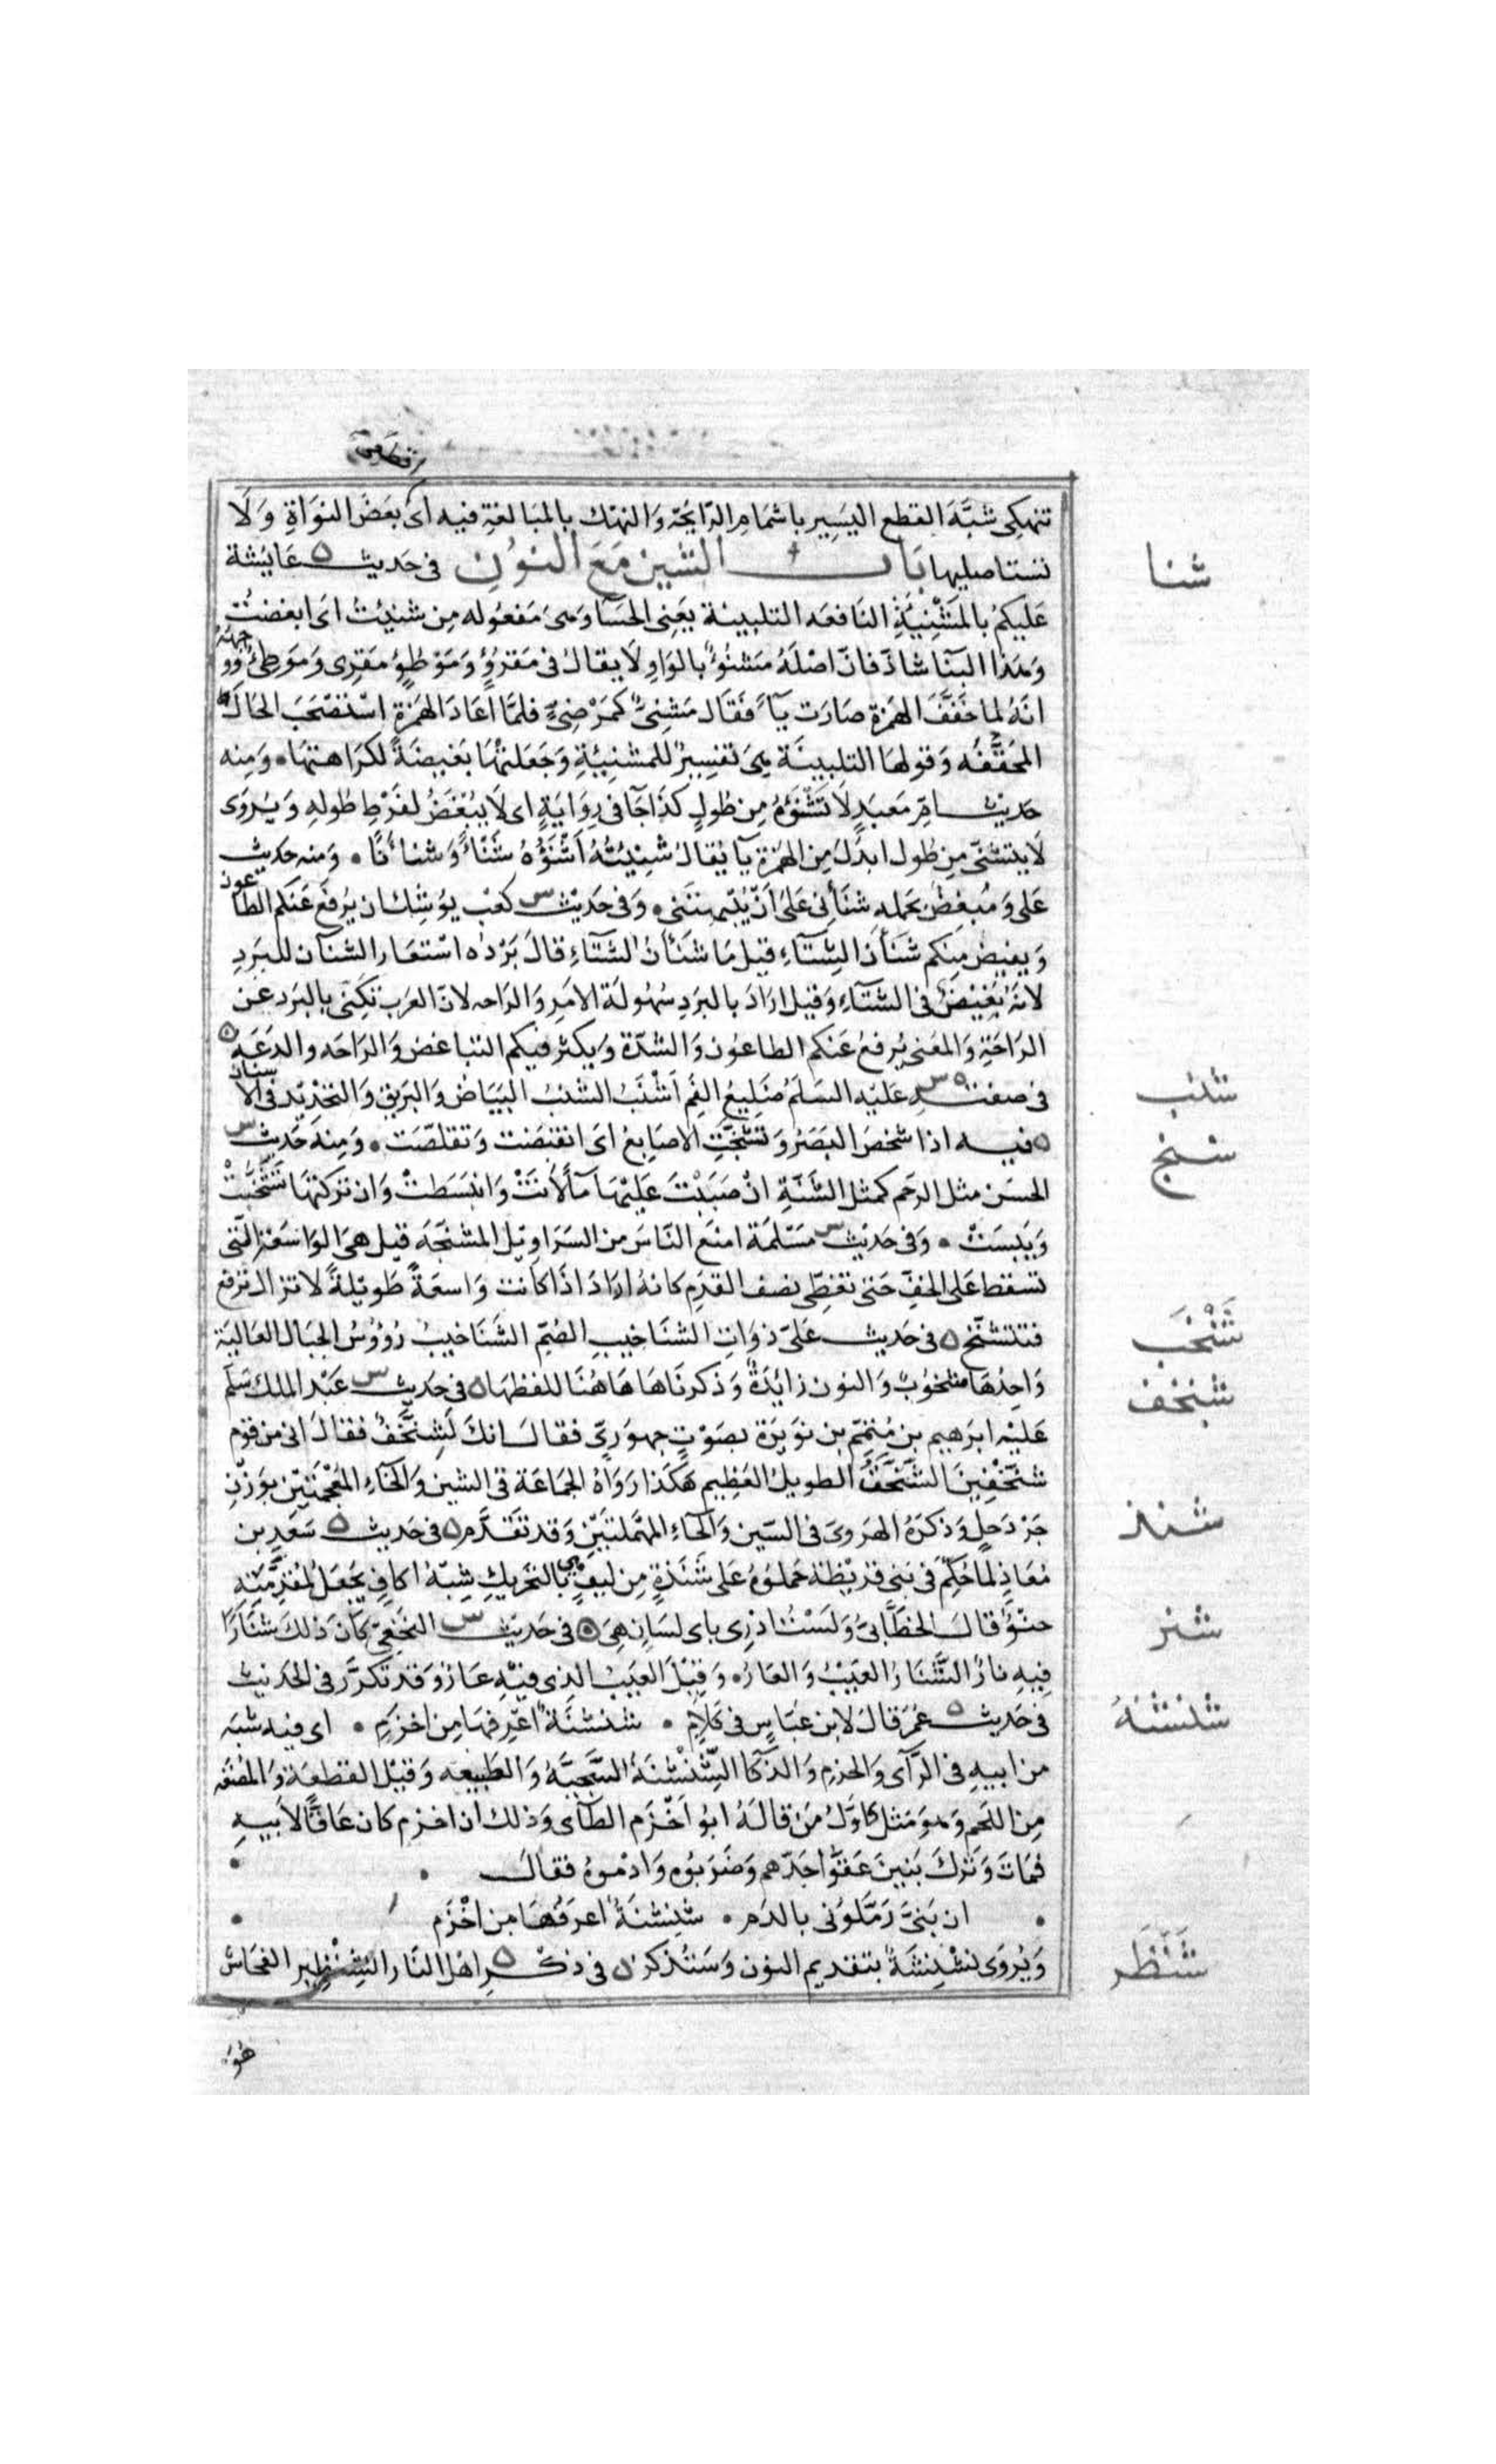 تنهكى شَبَّهَ القطع اليَسِير باشمَامِ الرّايحَة وَالنهْك بالمبَالغة فيه اى بعَضَ النوَاةِ وَلَا
شنا
تستاصليها بَاب الشين مَعَ النوْن فى حَديث عَايشة
عَليكم بالمَشْنِيئَةِ النَافعَه التلبينة يَعَنِى الحَسَآء وَهىَ مَفعُوله مِن شنِيْتُ اىَ ابغضتُ
وَهَذا البنَا شاذّ فانّ اصْلَهُ مَشنُوْءٌ بالوَاوِ لَا يقالُ فى مَقرُوْءٍ وَمَوْطُوءٍ مقرِى وَمَوَطِىءٌ وَوجهُهُ
انَهُ لما خَفّفَ الهمَزة صَارَت يآءً فقَالَ مَشنِىٌّ كمَرْضِىٍّ فلمَّا اعَادَ الهمَزة اسْتصْحَبَ الحَالَة
المخفّفَه وَقولهَا التلبينَة هِىَ تفسِيرٌ للمشنِيْئةِ وَجَعَلتْهَا بَغيضَةً لكرَاهتهَا • وَمِنه
حَديث امِّ مَعبَدٍ لَا تَشْنَؤُهُ مِن طُولٍ كَذَا جَآ فى رِوَايَةٍ اى لَا يُبْغَضُ لفَرْطِ طُولِهِ وَيُرْوَى
لَا يتشَنّى مِن طُول ابدَلَ مِن الهمَزة يآ يُقالُ شنِيْتُهُ اَشْنَؤُهُ شَنْأً وَشنَأنًا • وَمنه حَديث
عَلى وَمُبغِضٌ يحَمله شنَأَنِى عَلى اَنْ يَبْهتَنَى • وَفى حَدِيْث س كعْب يوُشِك ان يُرفَعَ عَنكم الطَاعون
وَيفيض مِنكم شنَأَنُ الشِتَآءِ قيل مَا شَنَأَنُ الشتَآءِ قالَ بَرْدُه اسْتعَار الشنَآن للبَردِ
لانهُ يَغيْضُ فى الشتَآءِ وَقيل ارَادَ بالبَردِ سُهُولَة الامَر وَالرَاحه لانّ العَرَب تكنِى بالبَرَد عَن
الرَاحَةِ وَالمعَنى يُرفَعُ عَنكم الطاعُون وَالشدّة وَيكثر فيكم التباغض وَالرَاحَه والدَعَه
شنب
فى صفته س عَليه السَلم ضَلِيعُ الفَم اَشْنَبُ الشنبُ البيَاضُ وَالبَريق وَالتحَدِيْد فى الاَسنان
شنج
فيه اذا شخصَ البَصَرُ وَتشنّجَتِ الاصَابعُ اىَ انقبَضَت وَتقلصَّت • وَمِنه حَديث س
الحسَن مثل الرحَم كمثل الشَنّةِ انْ صَبَبْتَ عَليْهَا مآءً لاَنتْ وَانبسَطتْ وَان تركتهَا تَشَنَّجَتْ
وَيَبسَتْ • وَفى حَديث س مَسْلَمَة امنَع النّاسَ من السَرَاويْل المشنّجَه قيل هىَ الوَاسَعَة التى
تسقط عَلى الخفِّ حَتى تغَطِّى نصف القدَمِ كانهُ ارَادَ اذَا كانت وَاسعَةً طَويْلةً لا تزال ترَفع
شَنْخَب
فتتشنّج فى حَديث عَلىّ ذوَاتِ الشنَاخيبِ الصُمّ الشَنَاخيبُ رُؤُوسُ الجبَال العَاليَة
شنخف
وَاحِدُهَا شنخوُبٌ وَالنون زايدَةٌ وَذكرنَاهَا هَاهُنَا للفظهَا فى حَديث س عَبْد الملك سَلّمَ
عَليْه ابرَهيم بن مُتمّم بن نوَيرَة بصَوْتٍ جهوَرىٍّ فقالَ انكَ لَشِنَّخْفٌ فقالَ انى من قوَم
شنّخْفِينَ الشَنَّخْفُ الطويلُ العَظِيم هَكَذا رَوَاهُ الجمَاعَة فى الشين وَالخآءِ المعْجَمَتيْن بوَزْنِ
شنذ
جَرْدَحَلٍ وَذكرَهُ الهَروىَ فى السَين وَالحآءِ المهملتيَنِ وَقد تقَدَّم فى حَديث سَعَدِ بن
مُعَاذٍ لمَا حُكّمَ فى بَنى قرَيْظة حَملوُهُ عَلى شَنَذَةٍ مِن ليفٍ هى بالتَحريكِ شِبْهُ اكافٍ يجَعَلُ لمُقدَّمَتِهِ
شنر
حنْوٌ قالَ الخطَّابىُّ وَلَسْتُ اذرِى باى لسَانٍ هِىَ فى حَديث س النخَعِىّ كانَ ذَلكَ شَنَارًا
فِيهِ نارٌ الشَّنَارُ العَيْبُ وَالعَارُ • وَقِيْلَ العَيبُ الذِى فيْهِ عَارٌ وَقد تكرَّرَ فى الحَديث
شنشنه
فى حَديث عُمَرَ قالَ لابن عَبَاسٍ فى كَلاَمٍ • شنشنَةٌ اعْرفهَا مِن اخزَمِ • اى فيه شبَه
من ابيهِ فى الرَآى وَالحزمِ وَالذكآ الشِّنْشِنَةُ السَّجيَّةُ وَالطَبيعَه وَقيْل القطعَة وَالمضْغَه
مِن اللحَم وَهوَ مَثل اوّلُ مَن قالَهُ ابُو اَخْزَم الطَآى وَذلك ان اخزم كان عَاقًّا لاَبيهِ
فمَاتَ وَتَركَ بَنينَ عَقّوا جَدّهم وَضَرَبوُه وَادْموهُ فقالَ •
• ان بَنىّ رَمّلوُنى بالدَم • شنشنَةٌ اعرفُهَا مِن اخْزَم •
شَنْظَر
وَيُرْوَى نشْنشَةٌ بتقديم النون وَسَتُذكر فى ذكْرِ اهْل النَار الشِنْظِير الفحَاش
هُوَ